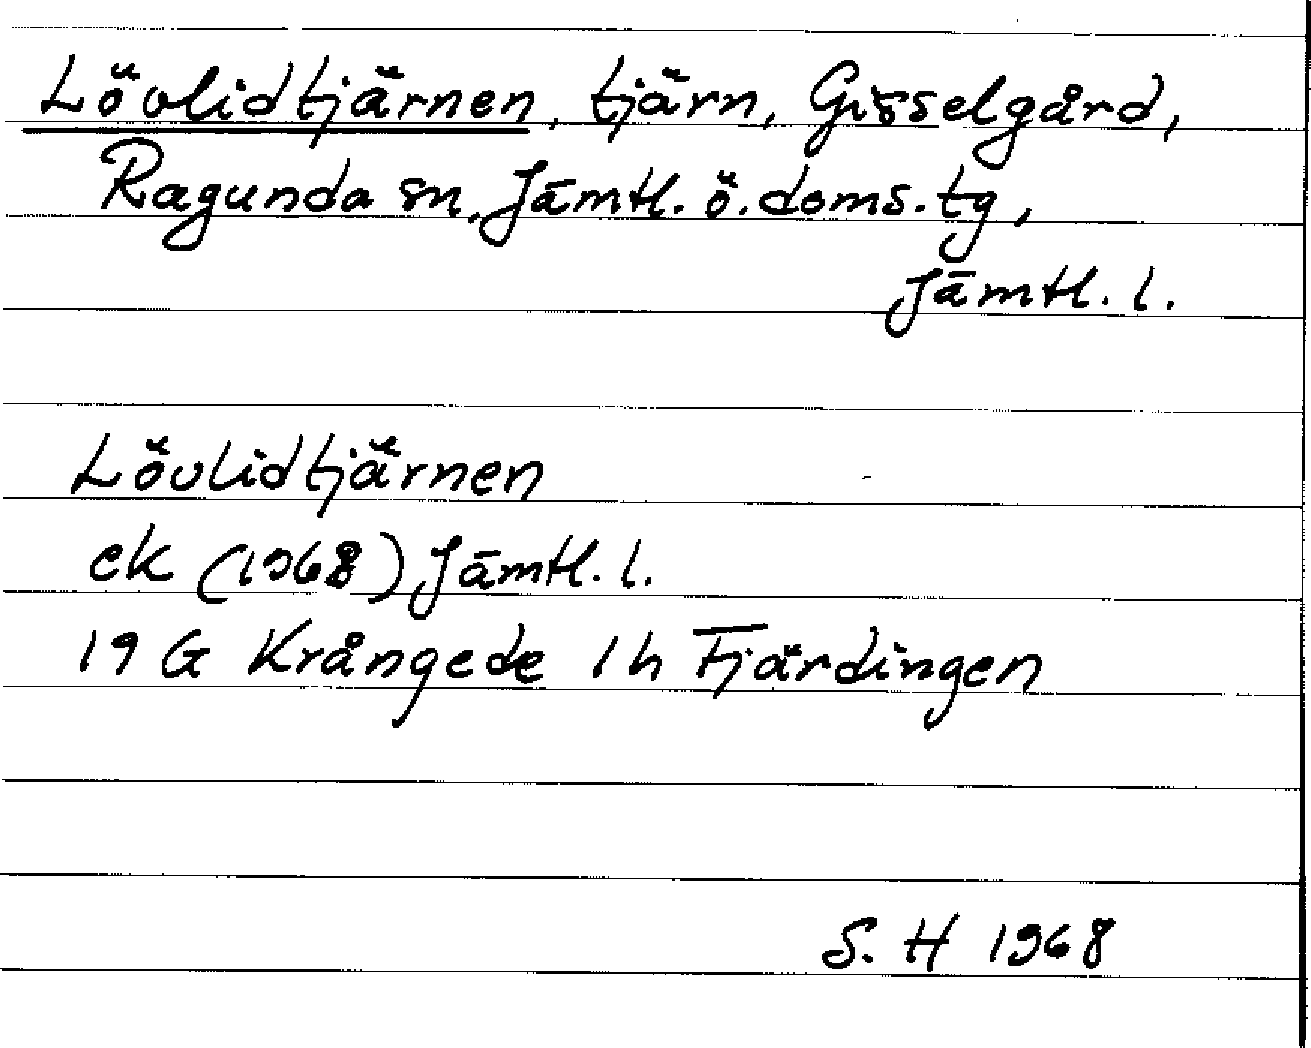 Lövlidtjärnen, tjärn, Gisselgård,
Ragunda sn, Jämtl. ö. doms. tg,
Jämtl. l.
Lövlidtjärnen
ek (1968) Jämtl. l.
19 G Krångede 1 h Fjärdingen
S. H 1968